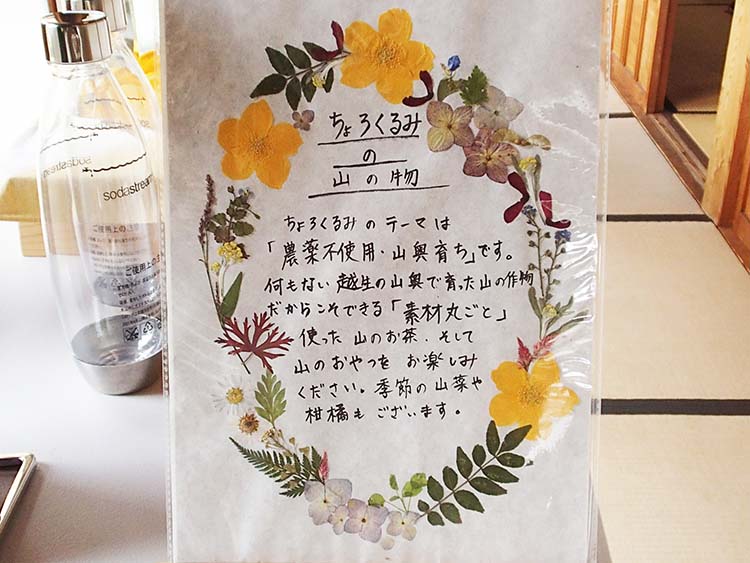 ちょろくるみ
の
山の物
ちょろくるみのテーマは
「農薬不使用・山奥育ち」です。
何もない越生の山奥で育った山の作物
だからこそできる「素材丸ごと」
使った山のお茶、そして
山のおやつをお楽しみ
ください。季節の山菜や
柑橘もございます。
sodastream
ご使用上の注意